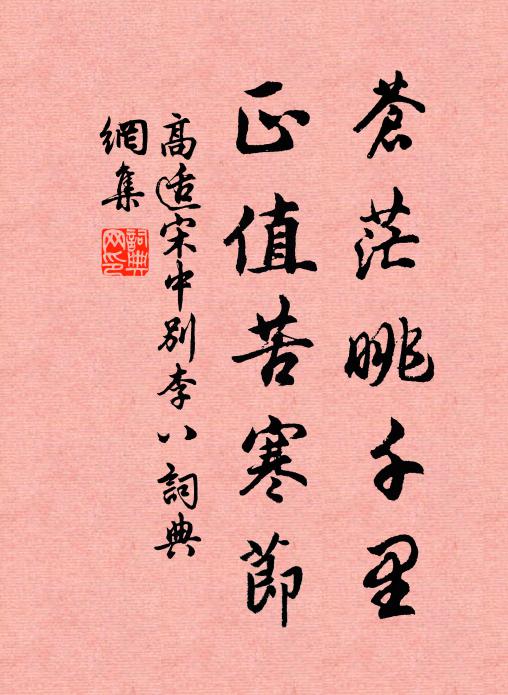 蒼茫眺千里
正值苦寒節
高适宋中別李八詞典
網集
詞典
網印